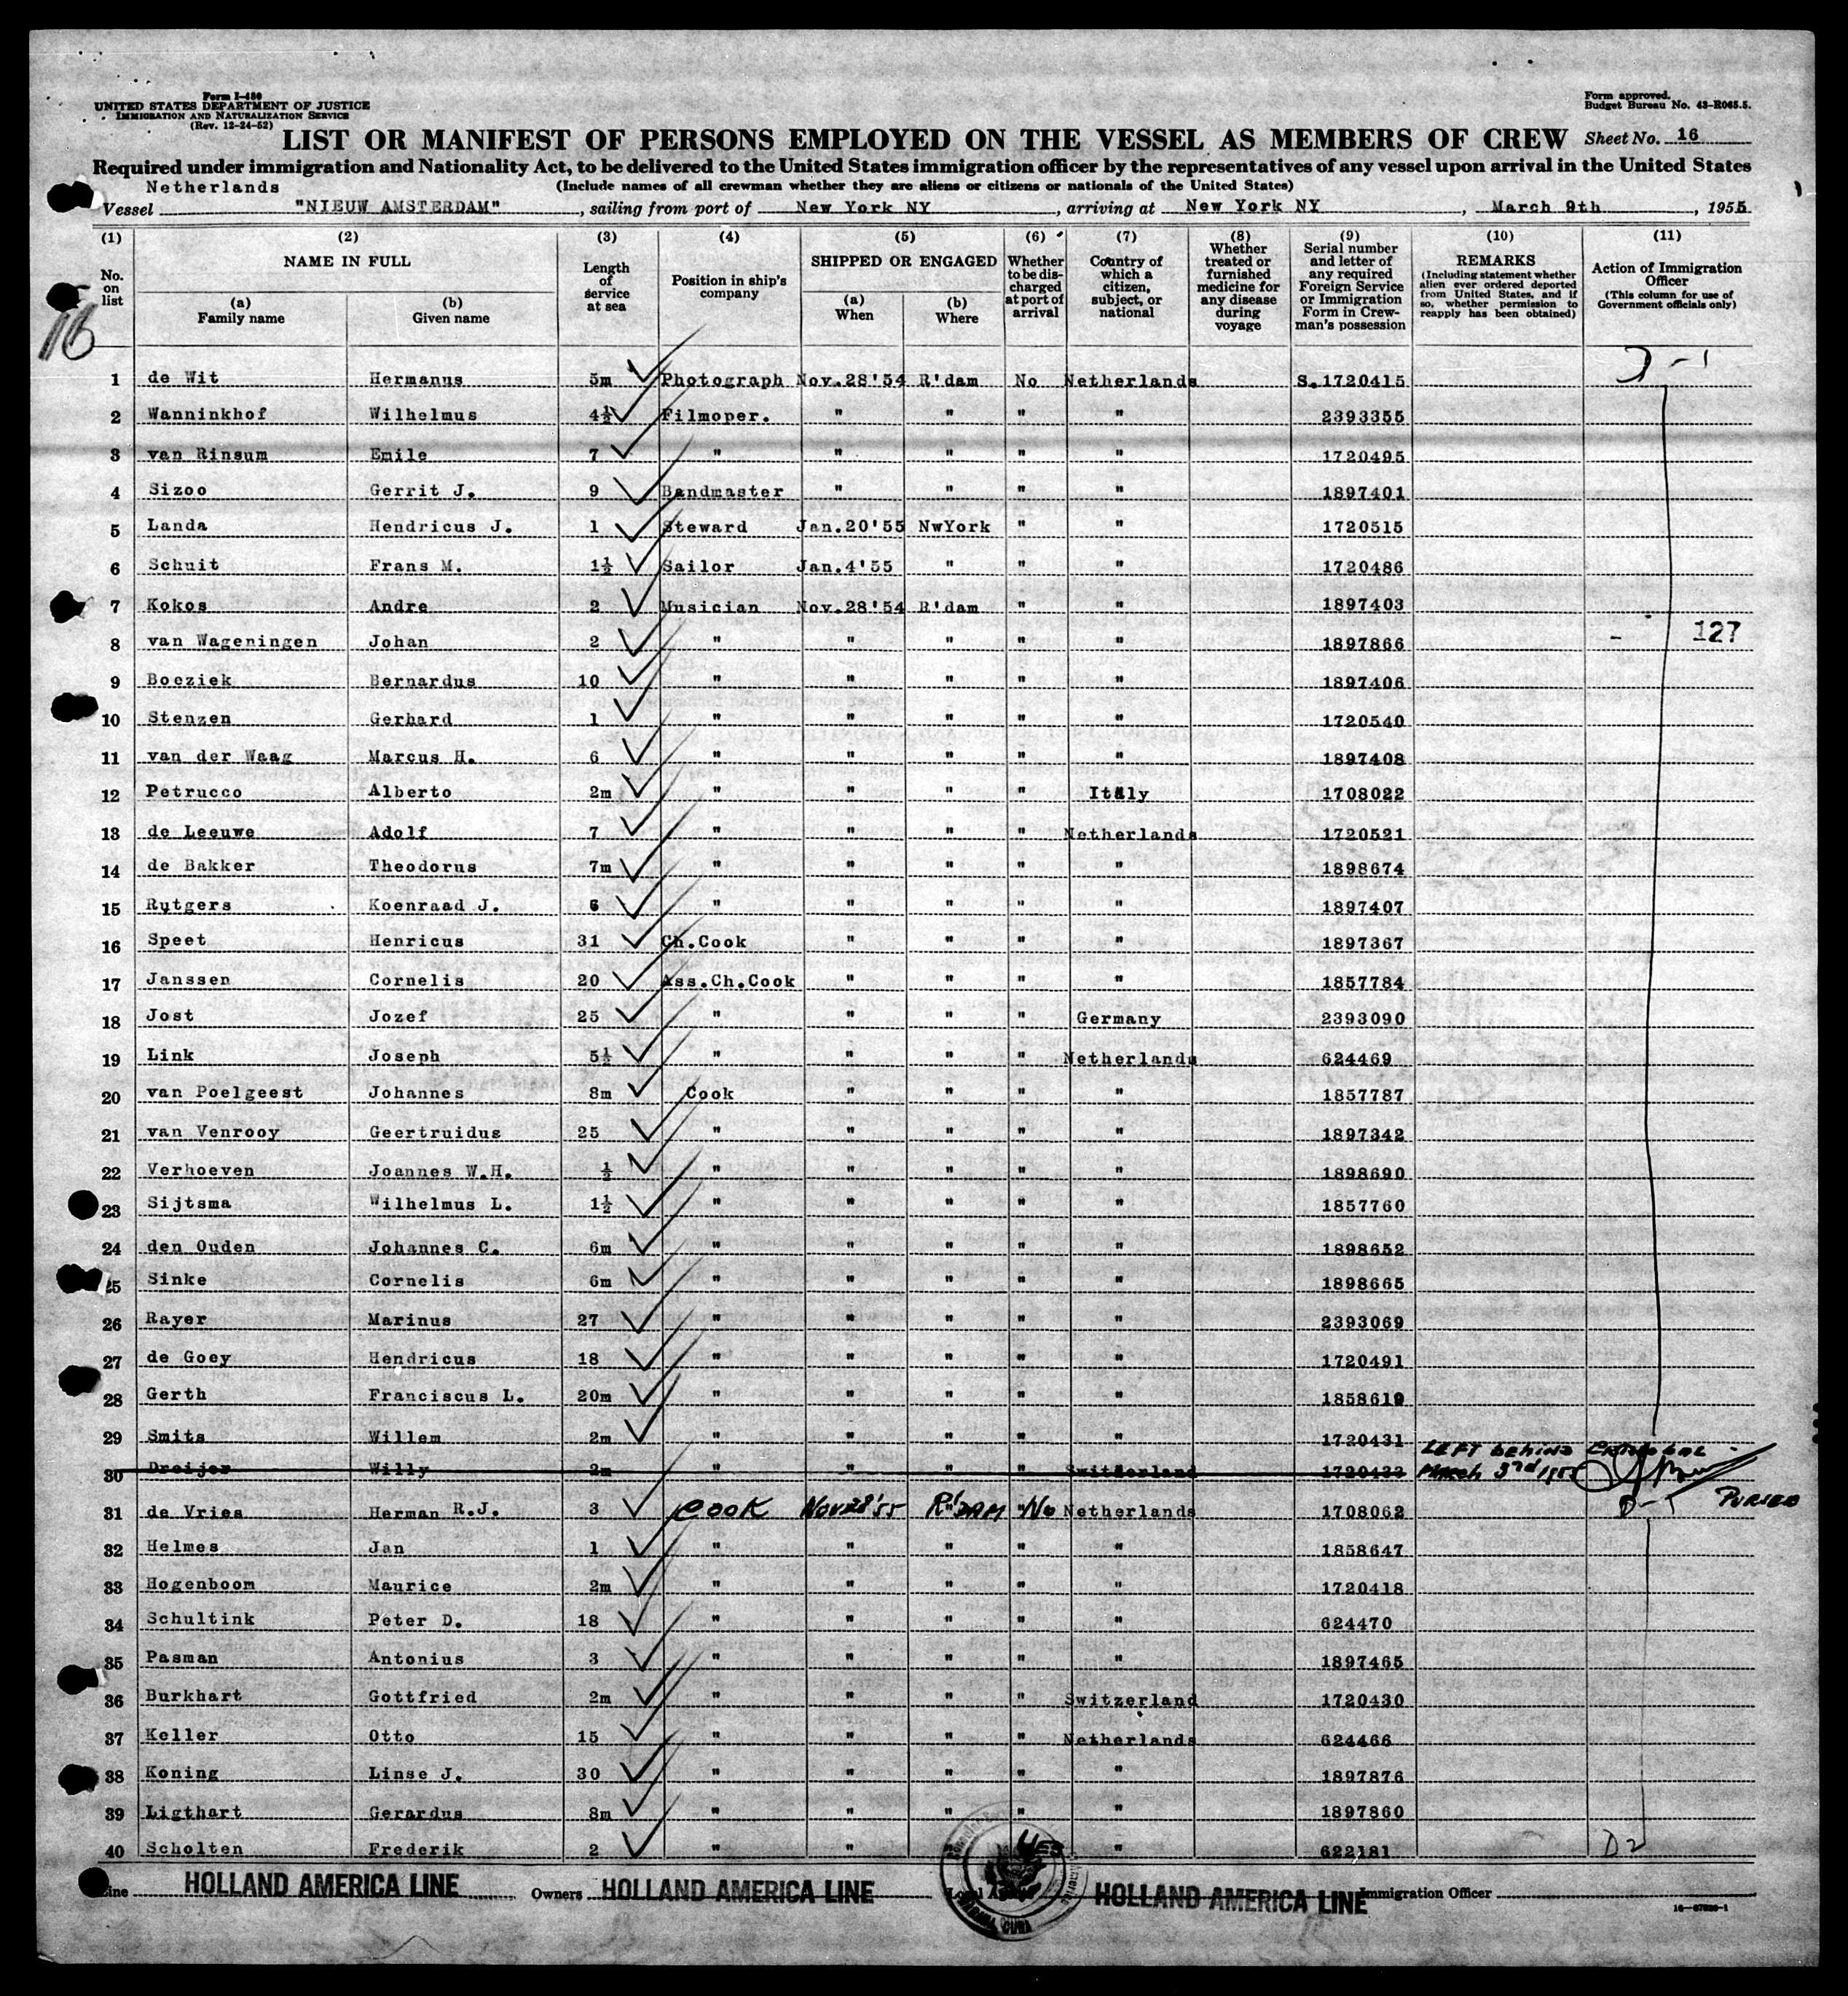 Form I-480
UNITED STATES DEPARTMENT OF JUSTICE
IMMIGRATION AND NATURALIZATION SERVICE
(Rev. 12-24-52)
Form approved.
Budget Bureau No. 43-R065.5.
LIST OR MANIFEST OF PERSONS EMPLOYED ON THE VESSEL AS MEMBERS OF CREW Sheet No. 16
Required under immigration and Nationality Act, to be delivered to the United States immigration officer by the representatives of any vessel upon arrival in the United States
Netherlands (Include names of all crewman whether they are aliens or citizens or nationals of the United States)
Vessel "NIEUW AMSTERDAM", sailing from port of New York NY, arriving at New York NY, March 9th, 1955
(1) No. on list
(2) NAME IN FULL (a) Family name (b) Given name
(3) Length of service at sea
(4) Position in ship's company
(5) SHIPPED OR ENGAGED (a) When (b) Where
(6) Whether to be discharged at port of arrival
(7) Country of which a citizen, subject, or national
(8) Whether treated or furnished medicine for any disease during voyage
(9) Serial number and letter of any required Foreign Service or Immigration Form in Crewman's possession
(10) REMARKS (Including statement whether alien ever ordered deported from United States, and if so, whether permission to reapply has been obtained)
(11) Action of Immigration Officer (This column for use of Government officials only)
16
1 de Wit Hermanus 5m Photograph Nov.28'54 R'dam No Netherlands S.1720415
2 Wanninkhof Wilhelmus 4½ Filmoper. " " " " 2393355
3 van Rinsum Emile 7 " " " " " 1720495
4 Sizoo Gerrit J. 9 Bandmaster " " " " 1897401
5 Landa Hendricus J. 1 Steward Jan.20'55 NwYork " " 1720515
6 Schuit Frans M. 1½ Sailor Jan.4'55 " " " 1720486
7 Kokos Andre 2 Musician Nov.28'54 R'dam " " 1897403
8 van Wageningen Johan 2 " " " " " 1897866 - 127
9 Boeziek Bernardus 10 " " " " " 1897406
10 Stenzen Gerhard 1 " " " " " 1720540
11 van der Waag Marcus H. 6 " " " " " 1897408
12 Petrucco Alberto 2m " " " " Italy 1708022
13 de Leeuwe Adolf 7 " " " " Netherlands 1720521
14 de Bakker Theodorus 7m " " " " " 1898674
15 Rutgers Koenraad J. 6 " " " " " 1897407
16 Speet Henricus 31 Ch.Cook " " " " 1897367
17 Janssen Cornelis 20 Ass.Ch.Cook " " " " 1857784
18 Jost Jozef 25 " " " " Germany 2393090
19 Link Joseph 5½ " " " " Netherlands 624469
20 van Poelgeest Johannes 8m Cook " " " " 1857787
21 van Venrooy Geertruidus 25 " " " " " 1897342
22 Verhoeven Joannes W.H. ½ " " " " " 1898690
23 Sijtsma Wilhelmus L. 1½ " " " " " 1857760
24 den Ouden Johannes C. 6m " " " " " 1898652
25 Sinke Cornelis 6m " " " " " 1898665
26 Rayer Marinus 27 " " " " " 2393069
27 de Goey Hendricus 18 " " " " " 1720491
28 Gerth Franciscus L. 20m " " " " " 1858619
29 Smits Willem 2m " " " " " 1720431
30 Dreijer Willy 2m " " " " Switzerland 1720433 LEFT BEHIND CRISTOBAL March 3rd 1955
31 de Vries Herman R.J. 3 COOK Nov 28'55 R'DAM No Netherlands 1708062 PURSER
32 Helmes Jan 1 " " " " " 1858647
33 Hogenboom Maurice 2m " " " " " 1720418
34 Schultink Peter D. 18 " " " " " 624470
35 Pasman Antonius 3 " " " " " 1897465
36 Burkhart Gottfried 2m " " " " Switzerland 1720430
37 Keller Otto 15 " " " " Netherlands 624466
38 Koning Linse J. 30 " " " " " 1897876
39 Ligthart Gerardus 8m " " " " " 1897860
40 Scholten Frederik 2 " " " 622181 D2
Line HOLLAND AMERICA LINE Owners HOLLAND AMERICA LINE Local Agents HOLLAND AMERICA LINE Immigration Officer